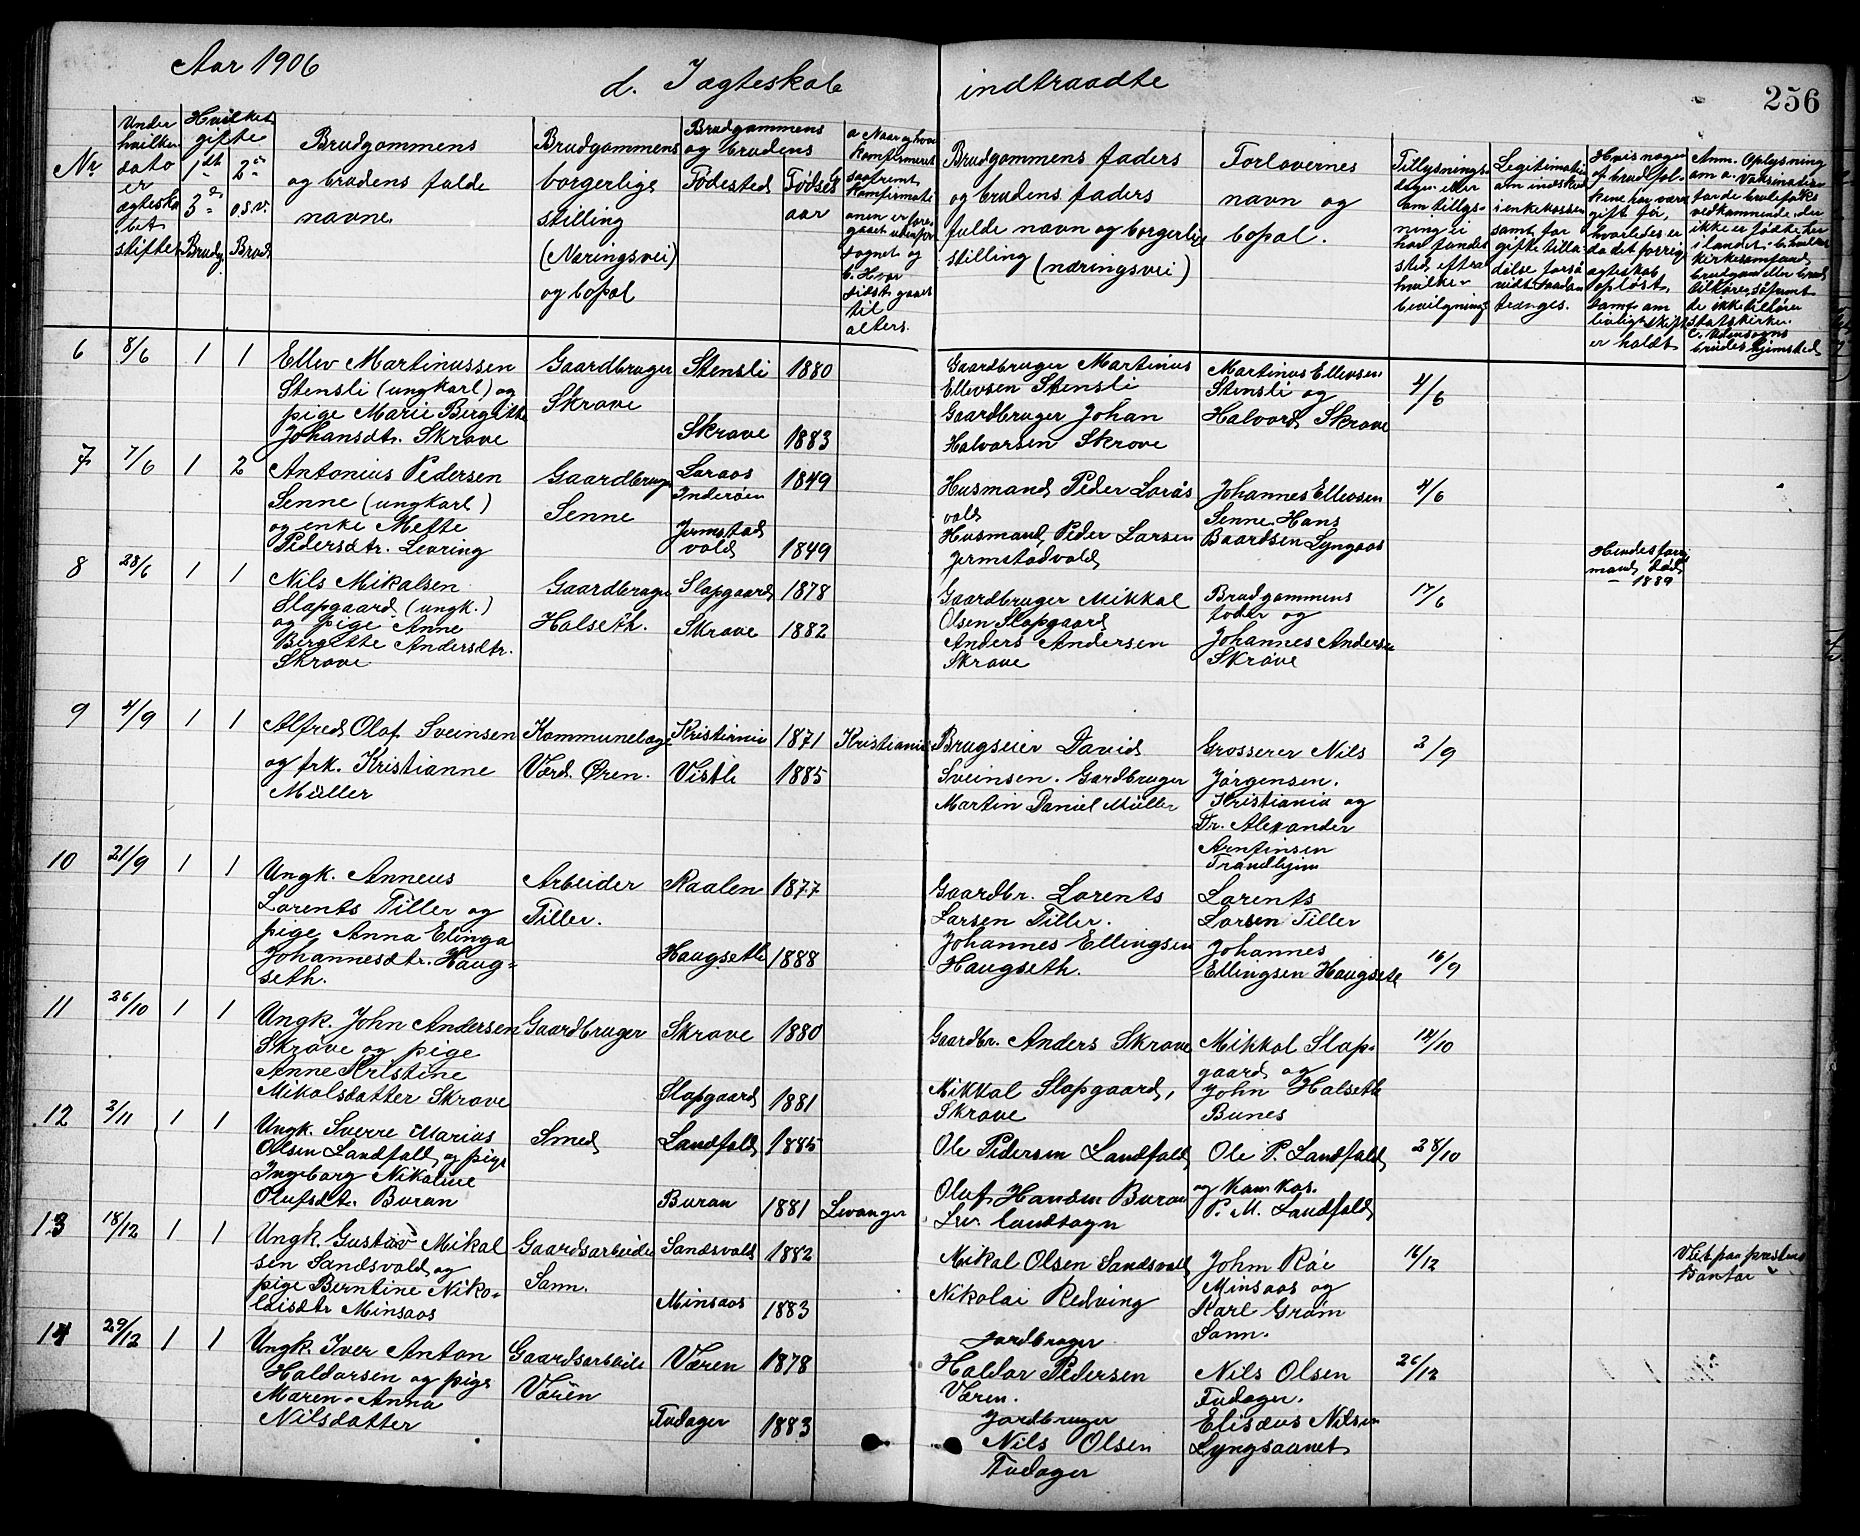 Aar 1906
d. I ægteskab indtraadte
256
Nr.
Under hvilken dato er ægteska bet stiftet
Hvilket gifte
1ste 2et
3de o.s.v.
Brudg. Brud
Brudgommens
og brudens fulde
navne.
Brudgommens
borgerlige
stilling
(Næringsvei)
og bopæl
Brudgommens
og brudens
Fødested
Fødsels
aar
Brudgommens faders
og brudens faders
fulde navn og borgerlige
stilling (næringsvei)
Forlovernes
navn og
bopæl.
6 8/6 1 1
Ellev Martinussen
Stensli (ungkarl) og
pige Marie Bergitte
Johansdtr. Skrove
Gaardbruger
Skrove
Stensli 1880
Skrove 1883
Gaardbruger Martinus
Ellevsen Stensli
Gaardbruger Johan
Halvorsen Skrove
Martinus Ellevsen
Stensli og
Halvord Skrove
4/6
7 7/6 1 2
Antonius Pedersen
Senne (ungkarl)
og enke Mette
Pedersdtr. Levring
Gaardbruger
Senne
Loraas
Inderøen
1849
Jermstad
vald 1849
Husmand Peder Lorås
vald
Husmand, Peder Larsen
Jermstadvald
Johannes Ellevsen
Senne. Hans
Baardsen Lyngaas
4/6
Hendes forrige
mand død
1889
8 28/6 1 1
Nils Mikalsen
Slapgaard (ungk.)
og pige Anne
Bergitte Andersdtr.
Skrove
Gaardbruger
Halseth.
Slapgaard 1878
Skrove 1882
Gaardbruger Mikkal
Olsen Slapgaard
Anders Andersen
Skrove
Brudgommens
fader og
Johannes Andersen
Skrove
17/6
9 4/9 1 1
Alfred Olaf Sveinsen
og frk. Kristianne
Müller
Kommunelæge
Værd. Øren.
Kristiania 1871 Kristiania
Vistli 1885
Brugseier David
Sveinsen. Gardbruger
Martin Daniel Müller
Grosserer Nils
Jørgensen.
Kristiania og
Dr. Alexander
Arntinsen
Trondhjem
2/9
10 21/9 1 1
Ungk. Anneus
Lorents Tiller og
pige Anna Elinga
Johannesdtr. Haug-
seth.
Arbeider
Tiller.
Raalen 1877
Haugseth 1888
Gaardbr. Lorents
Larsen Tiller.
Johannes Ellingsen
Haugseth.
Lorents
Larsen Tiller
Johannes
Ellingsen Haugseth
16/9
11 26/10 1 1
Ungk. John Andersen
Skrove og pige
Anne Kristine
Mikalsdatter Skrove
Gaardbruger
Skrove 1880
Slapgaard 1881
Gaardbr. Anders Skrove
Mikkal Slapgaard,
Skrove
Mikkal Slap-
gaard og
John Halseth
Bunes
14/10
12 2/11 1 1
Ungk. Sverre Marius
Olsen Landfald og pige
Ingeborg Nikoline
Olufsdt. Buran
Smed
Landfald 1885
Buran 1881 Levanger
Ole Pedersen Landfald
Oluf Hansen Buran
Lev. landsogn
Ole P. Landfald
og
P. M. Landfald
28/10
13 18/12 1 1
Ungk. Gustav Mikal
sen Sandsvald og
pige Berntine Niko-
laisdtr Minsaas
Gaardsarbeider
Sann.
Sandsvald 1882
Minsaas 1883
Mikal Olsen Sandsvald
Nikolai Redving
John Rói
Minsaas og
Karl Grøm
Sann.
16/12
14 29/12 1 1
Ungk. Iver Anton
Haldorsen og pige
Maren Anna
Nilsdatter
Gaardsarbeider
Væren
Væren 1878
Tvdager 1883
Jordbruger
Haldor Pedersen
Væren.
Jordbruger
Nils Olsen
Tvdager
Nils Olsen
Tvdager.
Elisæus Nilsen
Lyngsaanet
26/12